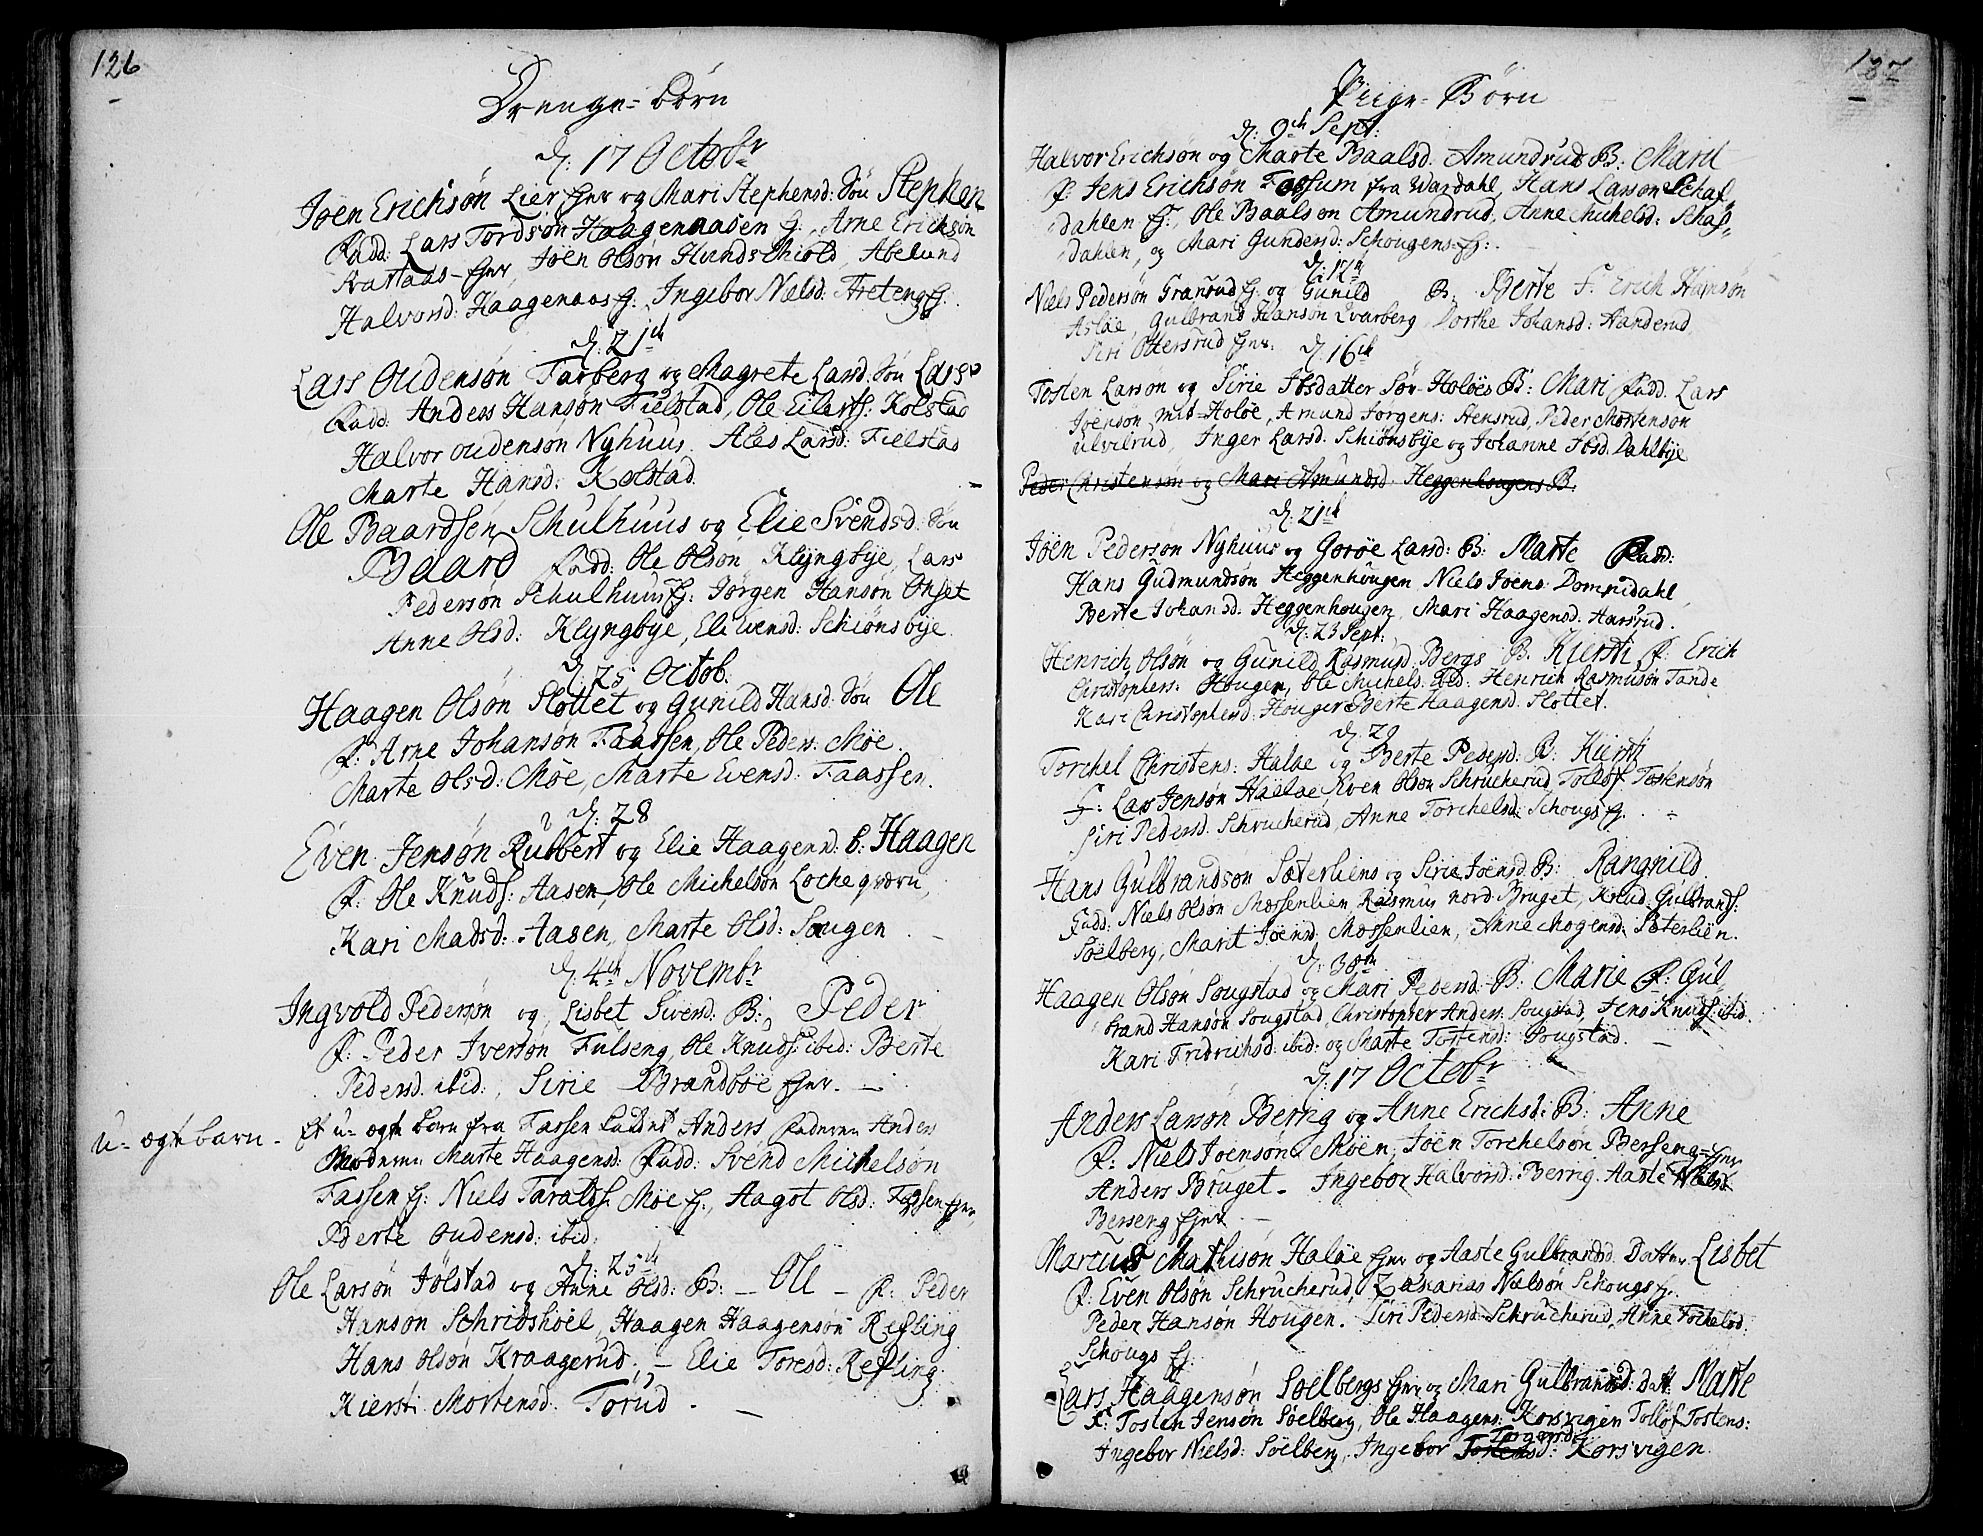 126
Drenge-børn
d: 17 Octobr
Joen Erichsøn Lier Eyer og Mari Stephensd: Søn Stephen
Fadd: Lars Tordsøn Haagenaasen E:, Arne Erichsøn
Joen Olsøn Hundschiold, Abelund
Halvorsd: Haagenaas E:, Ingebor Nielsd:
d: 21de
Lars Oudensøn Torberg og Magrete Larsd: Søn Lars
Fadd: Anders Hansøn Fielstad, Ole Eilerts: Kolstad
Halvor Oudensøn Nyhuus, Larsd: Fielstad
Marte Hansd: Kolstad
Ole Baardsen Schulhuus og Elie Svendsd: Søn
Baard Fadd: Ole Olsøn Klyngbye, Lars
Pedersøn Schulhuus E: Jørgen Hansøn Onset
Anne Olsd: Klyngbye, Eli Evensd: Schiønsbye
d: 25 Octob.
Haagen Olsøn Slottet og Gunild Hansd: Søn Ole
F: Arne Johansøn Faassen, Ole Peders: Møe.
Marte Olsd: Møe, Marte Evensd: Faassen.
d: 28
Even Jensøn Rubbert og Elie Haagensd: B: Haagen
F: Ole Knuds: Aasen, Ole Michelsøn Locheqværn,
Kari Madsd: Aasen, Marte Olsd: Sougen
d: 4de Novembr
Ingvold Pedersøn og Lisbet Siversd: B: Peder
F: Peder Iversøn Fulseng, Ole Knuds: ibid: Berte
Pedersd: ibid:, Sirie Brandbøe Eyer.
u-ægte barn - Et u-ægte barn fra Fassen Anders Faderen Anders
Moderen Marte Haagensd: Fadd: Svend Michelsøn
Fassen E: Niels Taralds: Møe E:, Aagot Olsd: Fassen Eyer,
Berte Oudensd: ibid:
d: 25de
Ole Larsøn Jølstad og Anne Olsd: B: - Ole - F: Peder
Hansøn Schribshoel, Haagen Haagensøn Refling
Hans Olsøn Kraagerud, - Elie Toresd: Refling
Kiersti Mortensd: Torud. -
127
Piige-Børn
d: 9de Sept:
Halvor Erichsøn og Marte Baalsd: Amundrud B: Marit
F: Jens Erichsøn Fossum fra Wardahl, Hans Larsøn Schaf-
dahlen E:, Ole Baalsøn Amundrud, Anne Michelsd: Schaf-
dahlen, og Mari Gundersd: Schougens E:.
d: 12te
Niels Pedersøn Granrud E: og Gunild B: Berte F: Erich Hansøn
Asløe, Gulbrand Hansøn Qvarberg, Dorthe Johansd: Handerud
Siri Ottersrud Eyer.
d: 16de
Tosten Larsøn og Sirie Ibsdatter Sør-Holøes B: Mari Fadd: Lars
Joensøn Mit-Holøe, Amund Jørgens: Stensrud, Peder Mortensøn
Ulvilrud, Inger Larsd: Schiønsbye og Johanne Ibsd: Dahlbye
Peder Christensøn og Mari Amundsd: Heggenhougens B:
d: 21de
Joen Pedersøn Nyhuus og Gorøe Larsd: B: Marte Fadd:
Hans Gudmundsøn Heggenhougen, Niels Joens: Domnidahl,
Berte Johansd: Heggenhougen, Mari Haagensd: Harsrud.
d: 23 Sept:
Henrich Olsøn og Gunild Rasmusd: Bergs B: Kiersti F: Erich
Christophers: Hougen, Ole Michels: ibid: Henrich Rasmusøn Tande
Kari Christophersd: Hougen Berte Haagensd: Slottet.
d: 29
Torchel Christens: Haløe og Berte Pedersd: B: Kiersti
F: Lars Jensøn Haløe, Even Olsøn Schrucherud, Tollof Tostensøn
Siri Pedersd: Schrucherud, Anne Torchelsd: Schougs E:.
Hans Gulbrandsøn Sæterliens og Sirie Joensd: B: Rangnild
Fadd: Niels Olsøn Mæssenlien Rasmus nord-Bruget, Knud Gulbrands:
Søelberg, Marit Joensd: Mossenlien, Anne Mogensd: Sæterlien.
d: 30te
Haagen Olsøn Sougstad og Mari Pedersd: B: Marie F: Gul-
brand Hansøn Sougstad, Christopher Anders: Sougstad, Jens Knuds: ibid.
Kari Fridrichsd: ibid: og Marte Tostensd: Sougstad. -
d: 17 Octobr
Anders Larsøn Berrig og Anne Erichsd: B: Anne
F: Niels Joensøn Møen, Joen Torchelsøn Berseng Eyer
Anders Bruget - Ingebor Halvorsd: Berrig. Aaste Nielsd:
Berseng Eyer
Marcus Mathisøn Haløe Eyer og Aaste Gulbrandsd: Datter Lisbet
F: Even Olsøn Schrucherud, Zakarias Nielsøn Schougs E:
Peder Hansøn Hougen. Siri Pedersd: Schrucherud, Anne Torchelsd:
Schougs E:
Lars Haagensøn Soelbergs Eyer og Mari Gulbrandsd: Dat: Marte
F: Tosten Jensøn Søelberg, Ole Haagens: Korsvigen Tollof Tostens:
Ingebor Nielsd: Søelberg, Ingebor Tostensd: Korsvigen.